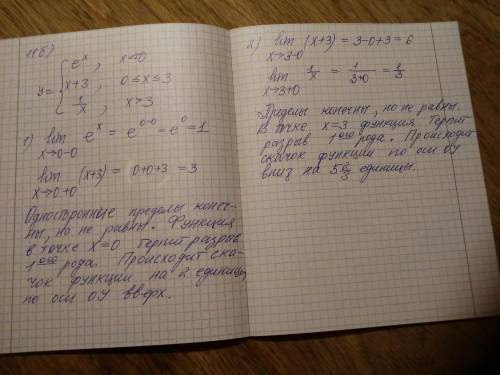 11б)
y = { e^x, x<0
x+3, 0≤x≤3
1/x, x>3
1) lim e^x = e^(0-0) = e^0 = 1
x→0-0
lim (x+3) = 0+0+3 = 3
x→0+0
Односторонные пределы конеч-
ны, но не равны. Функция
в точке x=0 терпит разрыв
1ого рода. Происходит ска-
чок функции на 2 единицы
по оси OY вверх.
2) lim (x+3) = 3-0+3 = 6
x→3-0
lim 1/x = 1/(3+0) = 1/3
x→3+0
Пределы конечны, но не равны.
В точке x=3 функция терпит
разрыв 1ого рода. Происходит
скачок функции по оси OY
вниз на единицы.